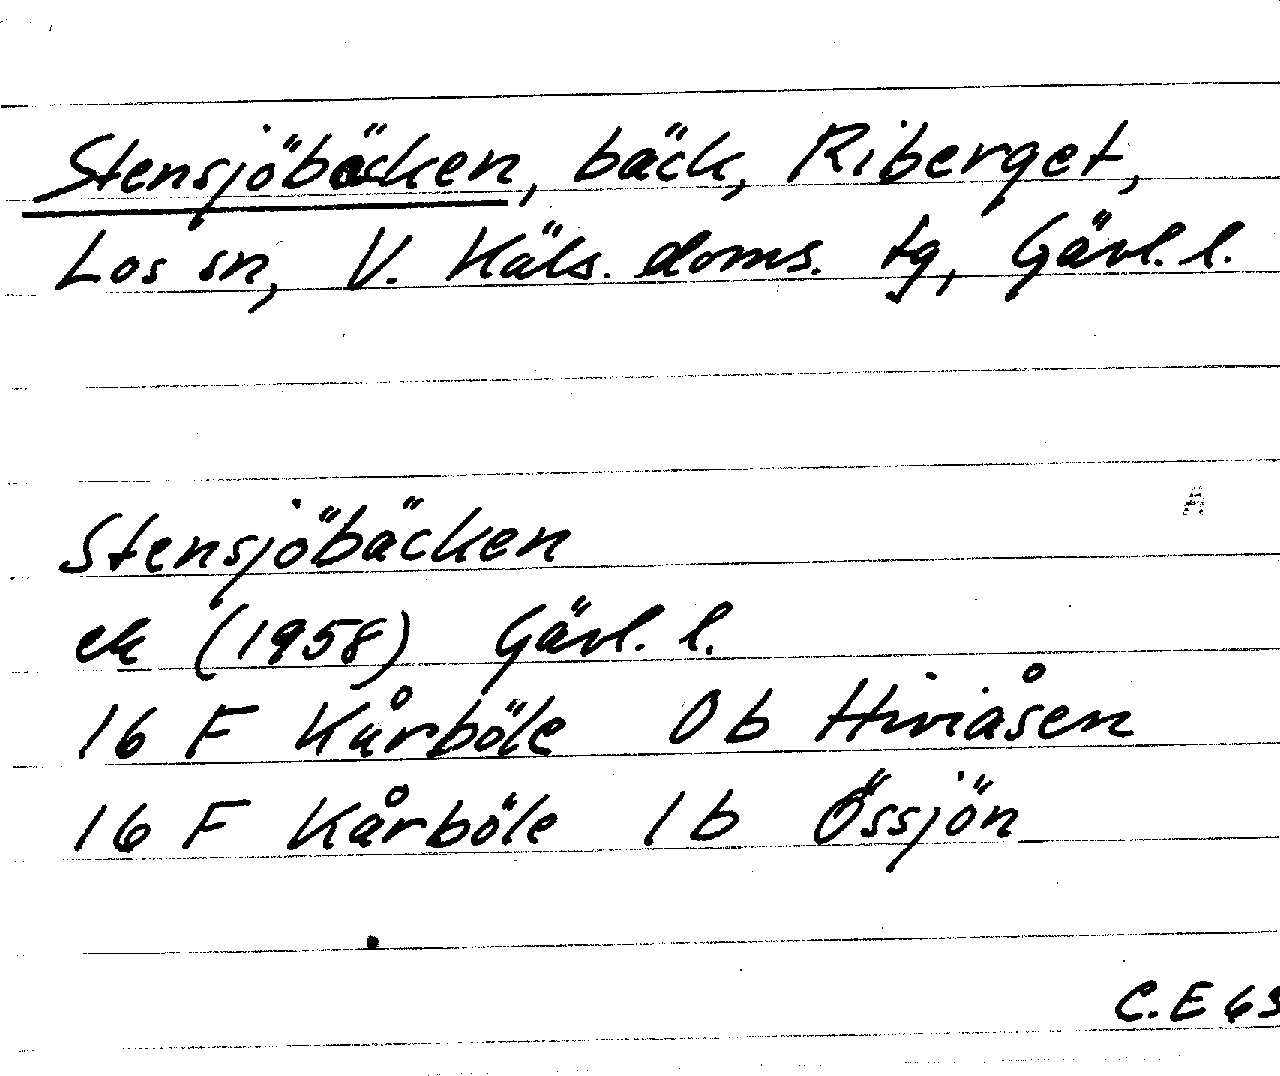 Stensjöbäcken, bäck, Riberget,
Los sn, V. Häls. doms. tg, Gävl. l.
A
Stensjöbäcken
ek (1958) Gävl. l.
16 F Kårböle 0 b Hiviåsen
16 F Kårböle 1 b Össjön
C.E 63